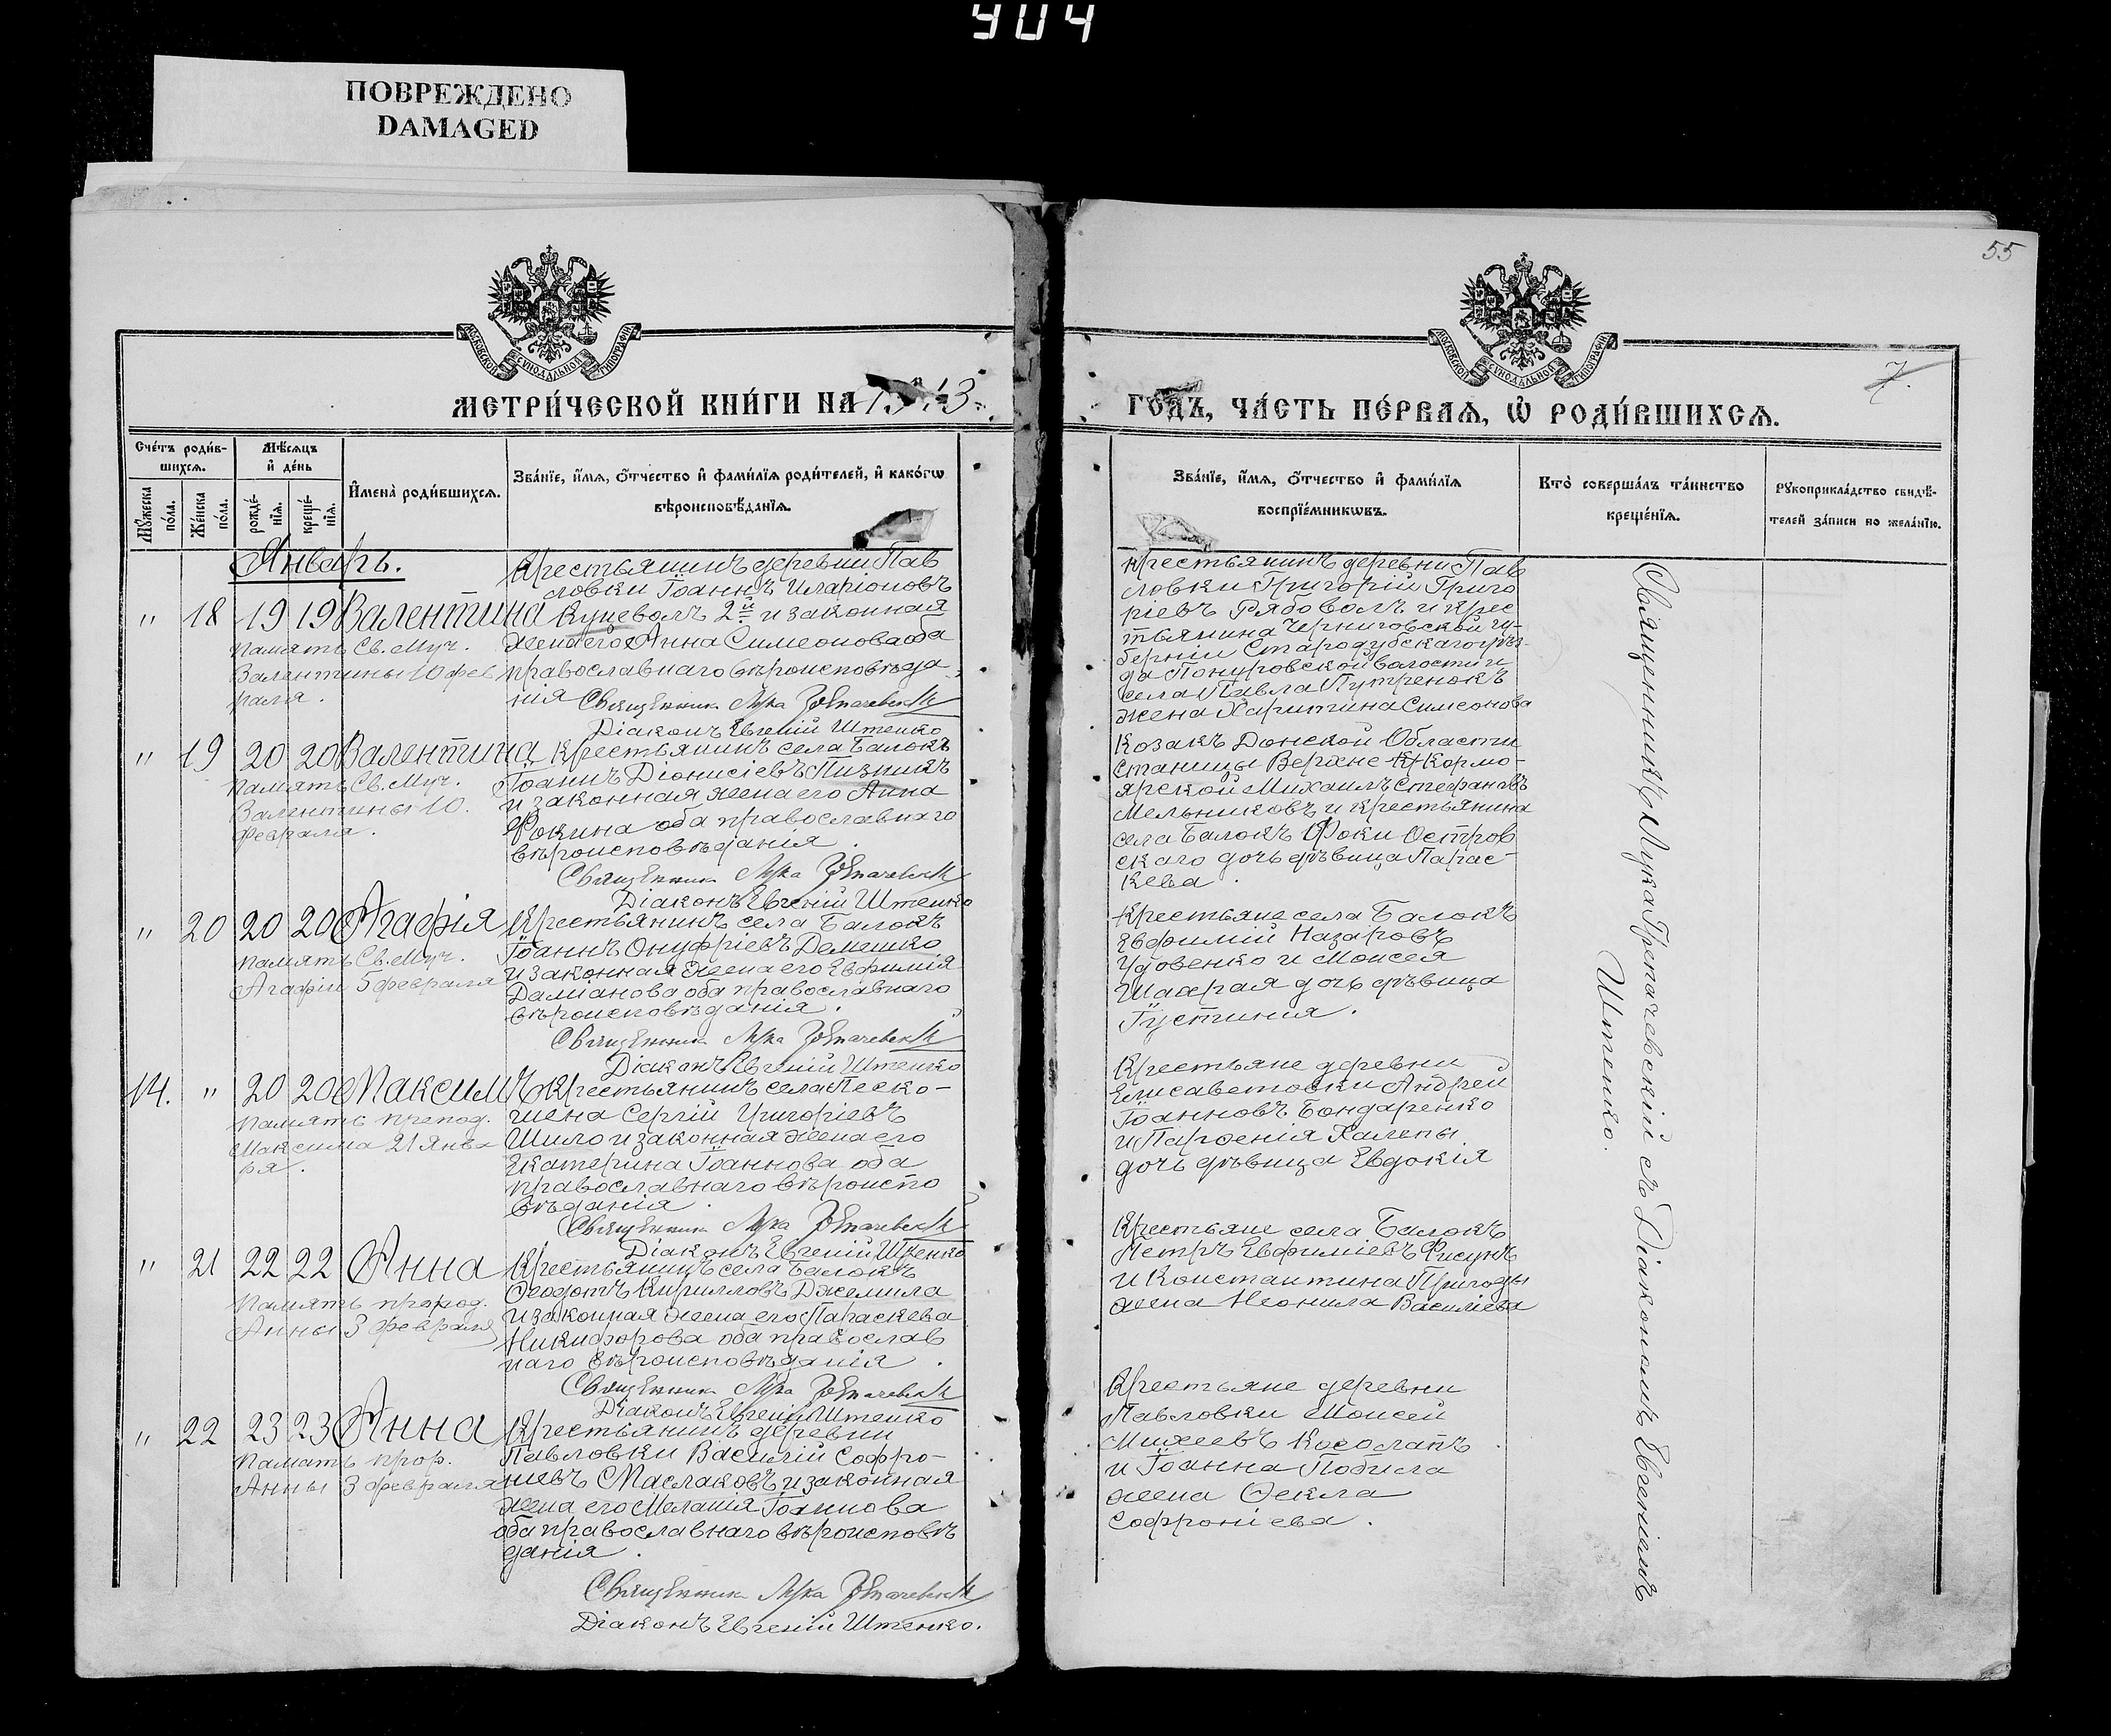 904
ПОВРЕЖДЕНО
DAMAGED
55
7.
МОСКОВСКОЙ СѴНОДАЛЬНОЙ ТИПОГРАФІИ
МОСКОВСКОЙ СѴНОДАЛЬНОЙ ТИПОГРАФІИ
МЕТРИ́ЧЕСКОЙ КНИ́ГИ НА 1913
ГОДЪ, ЧА́СТЬ ПЕ́РВАѦ, Ѡ РОДИ́ВШИХСѦ.
Сче́тъ роди́в-
шихсѧ.
Мꙋ́жеска по́ла.
Же́нска по́ла.
Мѣ́сѧцъ
и҆ де́нь
рожде́-
нїѧ.
креще́-
нїѧ.
И҆мена̀ роди́вшихсѧ.
Зва́нїе, и҆́мѧ, ѻ҆́тчество и҆ фами́лїѧ роди́телей, и҆ како́гѡ
вѣроисповѣ́данїѧ.
Зва́нїе, и҆́мѧ, ѻ҆́тчество и҆ фами́лїѧ
воспрїе́мникѡвъ.
Кто̀ соверша́лъ та́инство
креще́нїѧ.
Рꙋкоприкла́дство свидѣ́-
телей за́писи по жела́нїю.
Январь.
" 18 19 19 Валентина
Память Св. Муч.
Валентины 10 фев
раля.
Крестьянинъ деревни Пав
ловки Іоаннъ Иларіоновъ
Куцеволъ 2й и законная
жена его Анна Симеонова оба
православнаго вѣроисповѣда-
нія Священникъ Лука
Діаконъ Евгеній Штенко
Крестьянинъ деревни Пав
ловки Григорій Григо
ріевъ Рябоволъ и крес
тьянина Черниговской гу-
берніи Стародубскаго уѣз-
да Понуровской волости и
села Павла Путренокъ
жена Харитина Симеонова
" 19 20 20 Валентина
Память Св. Муч.
Валентины 10.
Февраля.
Крестьянинъ села Балокъ
Іоаннъ Діонисіевъ Пизникъ
и законная жена его Анна
Фокина оба православнаго
вѣроисповѣданія.
Священникъ Лука
Діаконъ Евгеній Штенко
Козакъ Донской Области
станицы Верхне Кормо-
ярской Михаилъ Стефановъ
Мельниковъ и крестьянина
села Балокъ Фоки Остров
скаго дочь дѣвица Парас-
кева.
" 20 20 20 Агафія
Память Св. Муч.
Агафіи 5 февраля
Крестьянинъ села Балокъ
Іоаннъ Онуфріевъ Демешко
и законная жена его Евфимія
Даміанова оба православнаго
вѣроисповѣданія.
Священникъ Лука
Діаконъ Евгеній Штенко
Крестьяне села Балокъ
Евфимій Назаровъ
Удовенко и Моисея
Шакрая дочь дѣвица
Іустинія.
14. " 20 20 Максимъ
Память препод.
Максима 21 Янва
ря.
Крестьянинъ села Песко-
шена Сергій Григоріевъ
Шило и законная жена его
Екатерина Іоаннова оба
православнаго вѣроиспо
вѣданія.
Священникъ Лука
Діаконъ Евгеній Штенко
Крестьяне деревни
Елисаветовки Андрей
Іоанновъ Бондаренко
и Парѳенія Халепы
дочь дѣвица Евдокія
" 21 22 22 Анна
Память прород.
Анны 3 февраля
Крестьянинъ села Балокъ
Ѳеодотъ Кирилловъ Джемила
и законная жена его Параскева
Никифорова оба православ
наго вѣроисповѣданія.
Священникъ Лука
Діаконъ Евгеній Штенко
Крестьяне села Балокъ
Петръ Евфиміевъ Фисунъ
и Константина Пригоды
жена Неонила Василіева
" 22 23 23 Анна
Память прор.
Анны 3 февраля
Крестьянинъ деревни
Павловки Василій Софро-
ніевъ Маслаковъ и законная
жена его Меланія Іоаннова
оба православнаго вѣроисповѣ
данія.
Священникъ Лука
Діаконъ Евгеній Штенко.
Крестьяне деревни
Павловки Моисей
Михеевъ Косолапъ
и Іоанна Побила
жена Ѳекла
Софроніева.
Священникъ Лука Гретачевскій съ Діакономъ Евгеніемъ
Штенко.